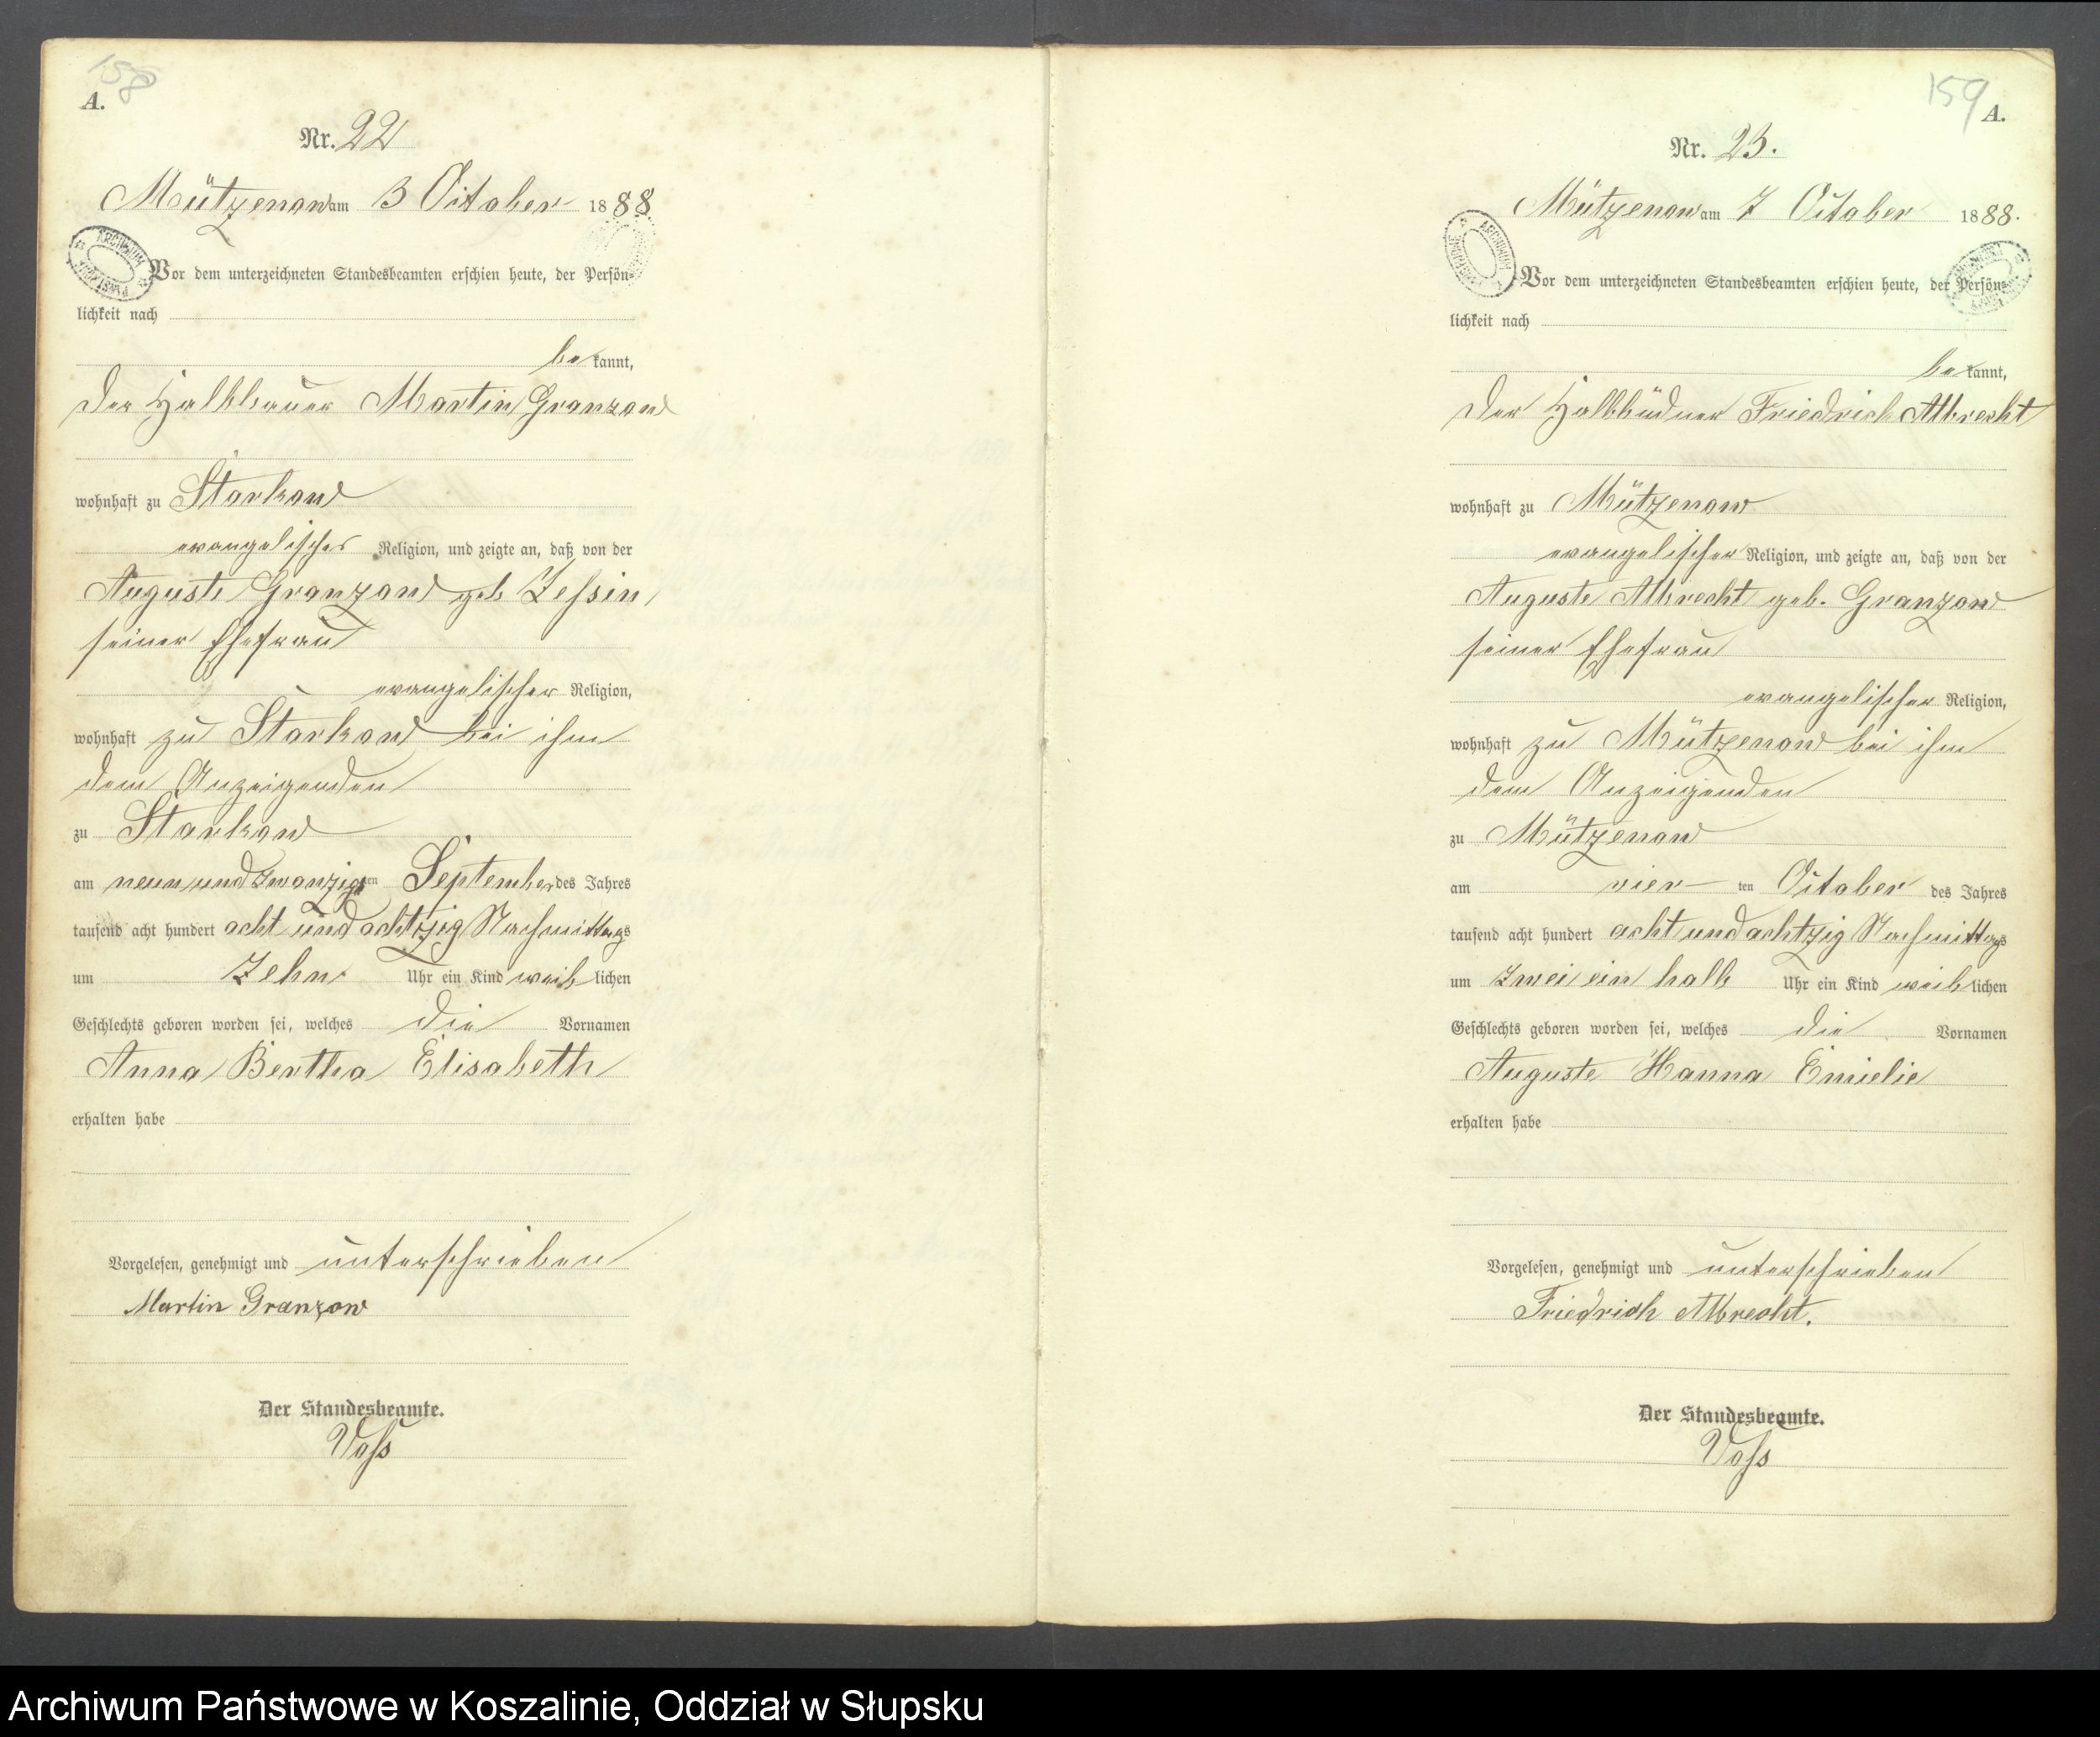 158
A.
Nr. 22
Mützenow am 3 October 1888
Vor dem unterzeichneten Standesbeamten erschien heute, der Persön-
lichkeit nach
bekannt,
der Halbbauer Martin Granzow
wohnhaft zu Starkow
evangelischer Religion, und zeigte an, daß von der
Auguste Granzow geb Zessin,
seiner Ehefrau
evangelischer Religion,
wohnhaft zu Starkow bei ihm
dem Anzeigenden
zu Starkow
am neun und zwanzigsten September des Jahres
tausend acht hundert acht und achtzig Nachmittags
um Zehn Uhr ein Kind weiblichen
Geschlechts geboren worden sei, welches die Vornamen
Anna Bertha Elisabeth
erhalten habe
Vorgelesen, genehmigt und unterschrieben
Martin Granzow
Der Standesbeamte.
Voss
159
A.
Nr. 23.
Mützenow am 7 October 1888.
Vor dem unterzeichneten Standesbeamten erschien heute, der Persön-
lichkeit nach
bekannt,
der Halbbüdner Friedrich Albrecht
wohnhaft zu Mützenow
evangelischer Religion, und zeigte an, daß von der
Auguste Albrecht geb. Granzow
seiner Ehefrau
evangelischer Religion,
wohnhaft zu Mützenow bei ihm
dem Anzeigenden
zu Mützenow
am vierten October des Jahres
tausend acht hundert acht und achtzig Nachmittags
um zwei ein halb Uhr ein Kind weiblichen
Geschlechts geboren worden sei, welches die Vornamen
Auguste Hanna Emielie
erhalten habe
Vorgelesen, genehmigt und unterschrieben
Friedrich Albrecht.
Der Standesbeamte.
Voss
Archiwum Państwowe w Koszalinie, Oddział w Słupsku